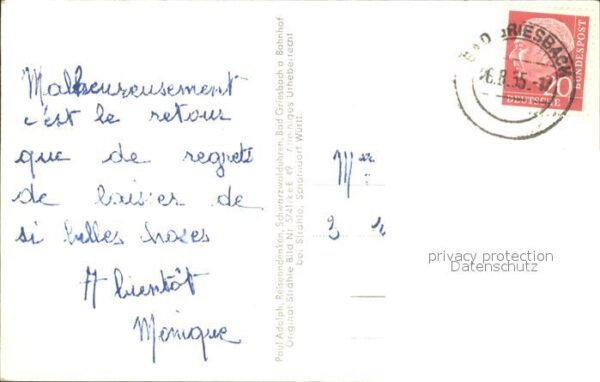 Malheureusement
c'est le retour
que de regrets
de laisser de
si belles choses
A bientôt
Monique
Paul Adolph, Reiseandenken, Schwarzwalduhren, Bad Griesbach a. Bahnhof
Original Strähle Bild Nr.
bei Strähle, Schorndorf Württ.
Mer
3
BAD GRIESBACH
6.8.55
20
DEUTSCHE
BUNDESPOST
privacy protection
Datenschutz